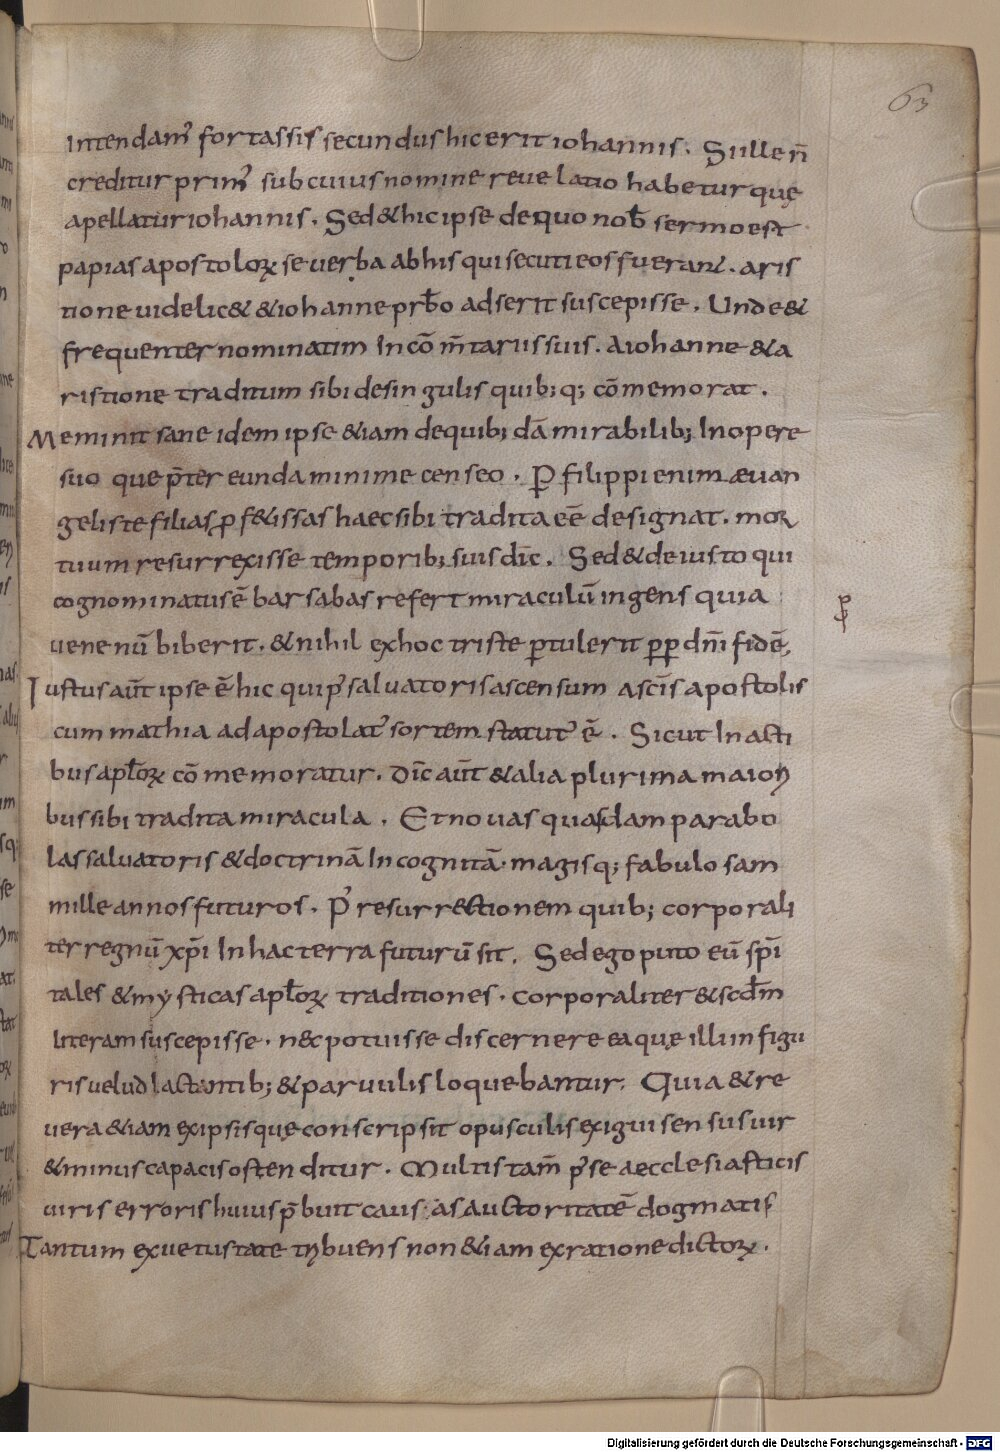 63
intendam᾽ fortassis secundus hic erit iohannis. Si ille n̄
creditur prim᾽ sub cuius nomine reuelatio habetur quę
apellatur iohannis. Sed & hic ipse de quo nob̄ sermo est
papias apostoloꝝ se uerba ab his qui secuti eos fuerant. aris
tione uidelic& & iohanne prb̄o adserit suscepisse. Unde &
frequenter nominatim In cōm̄tariis suis. A iohanne & a
ristione traditum sibi de singulis quib;q; cōmemorat.
Meminit sane idem ipse &iam de quib; dā mirabilib; In opere
suo que p̄tereunda minime censeo. P̲ filippi enim æuan
gelistę filias ꝓf&issas haec sibi tradita eē designat. moꝝ
tuum resurrexisse temporib; suis dīc. Sed & de iusto qui
cognominatus ē barsabas refert miraculū ingens quia
uenenū biberit. & nihil ex hoc triste ꝑtulerit ꝓꝑ dn̄i fidē,
Iustus aūt ipse ē hic qui p᾽ saluatoris ascensum a sc̄is apostolis
cum mathia ad apostolat᾽ sortem statut᾽ ē. Sicut In acti
bus apl̄oꝝ cōmemoratur. Dīc aūt & alia plurima maioꝝ
bus sibi tradita miracula. Et nouas quasdam parabo
las saluatoris & doctrinā Incognitā. magisq; fabulosam
mille annos futuros. P᾽ resurrectionem quib; corporali
ter regnū xp̄i In hac terra futurū sit. Sed ego puto eū sp̄i
tales & mẏsticas apl̄oꝝ traditiones. corporaliter & scdm̄
literam suscepisse. n&c potuisse discernere ea quę illi in figu
ris uelud lactantib; & paruulis loquebantur. Quia & re
uera &iam ex ipsis quę conscripsit opusculis exigui sensus uir
& minus capacis ostenditur. Multis tam̄ p᾽ se aecclesiasticis
uiris erroris huius p̄buit causas auctoritatē dogmatis
Tantum ex uetustate tribuens non &iam ex ratione dictoꝝ.
Digitalisierung gefördert durch die Deutsche Forschungsgemeinschaft - DFG